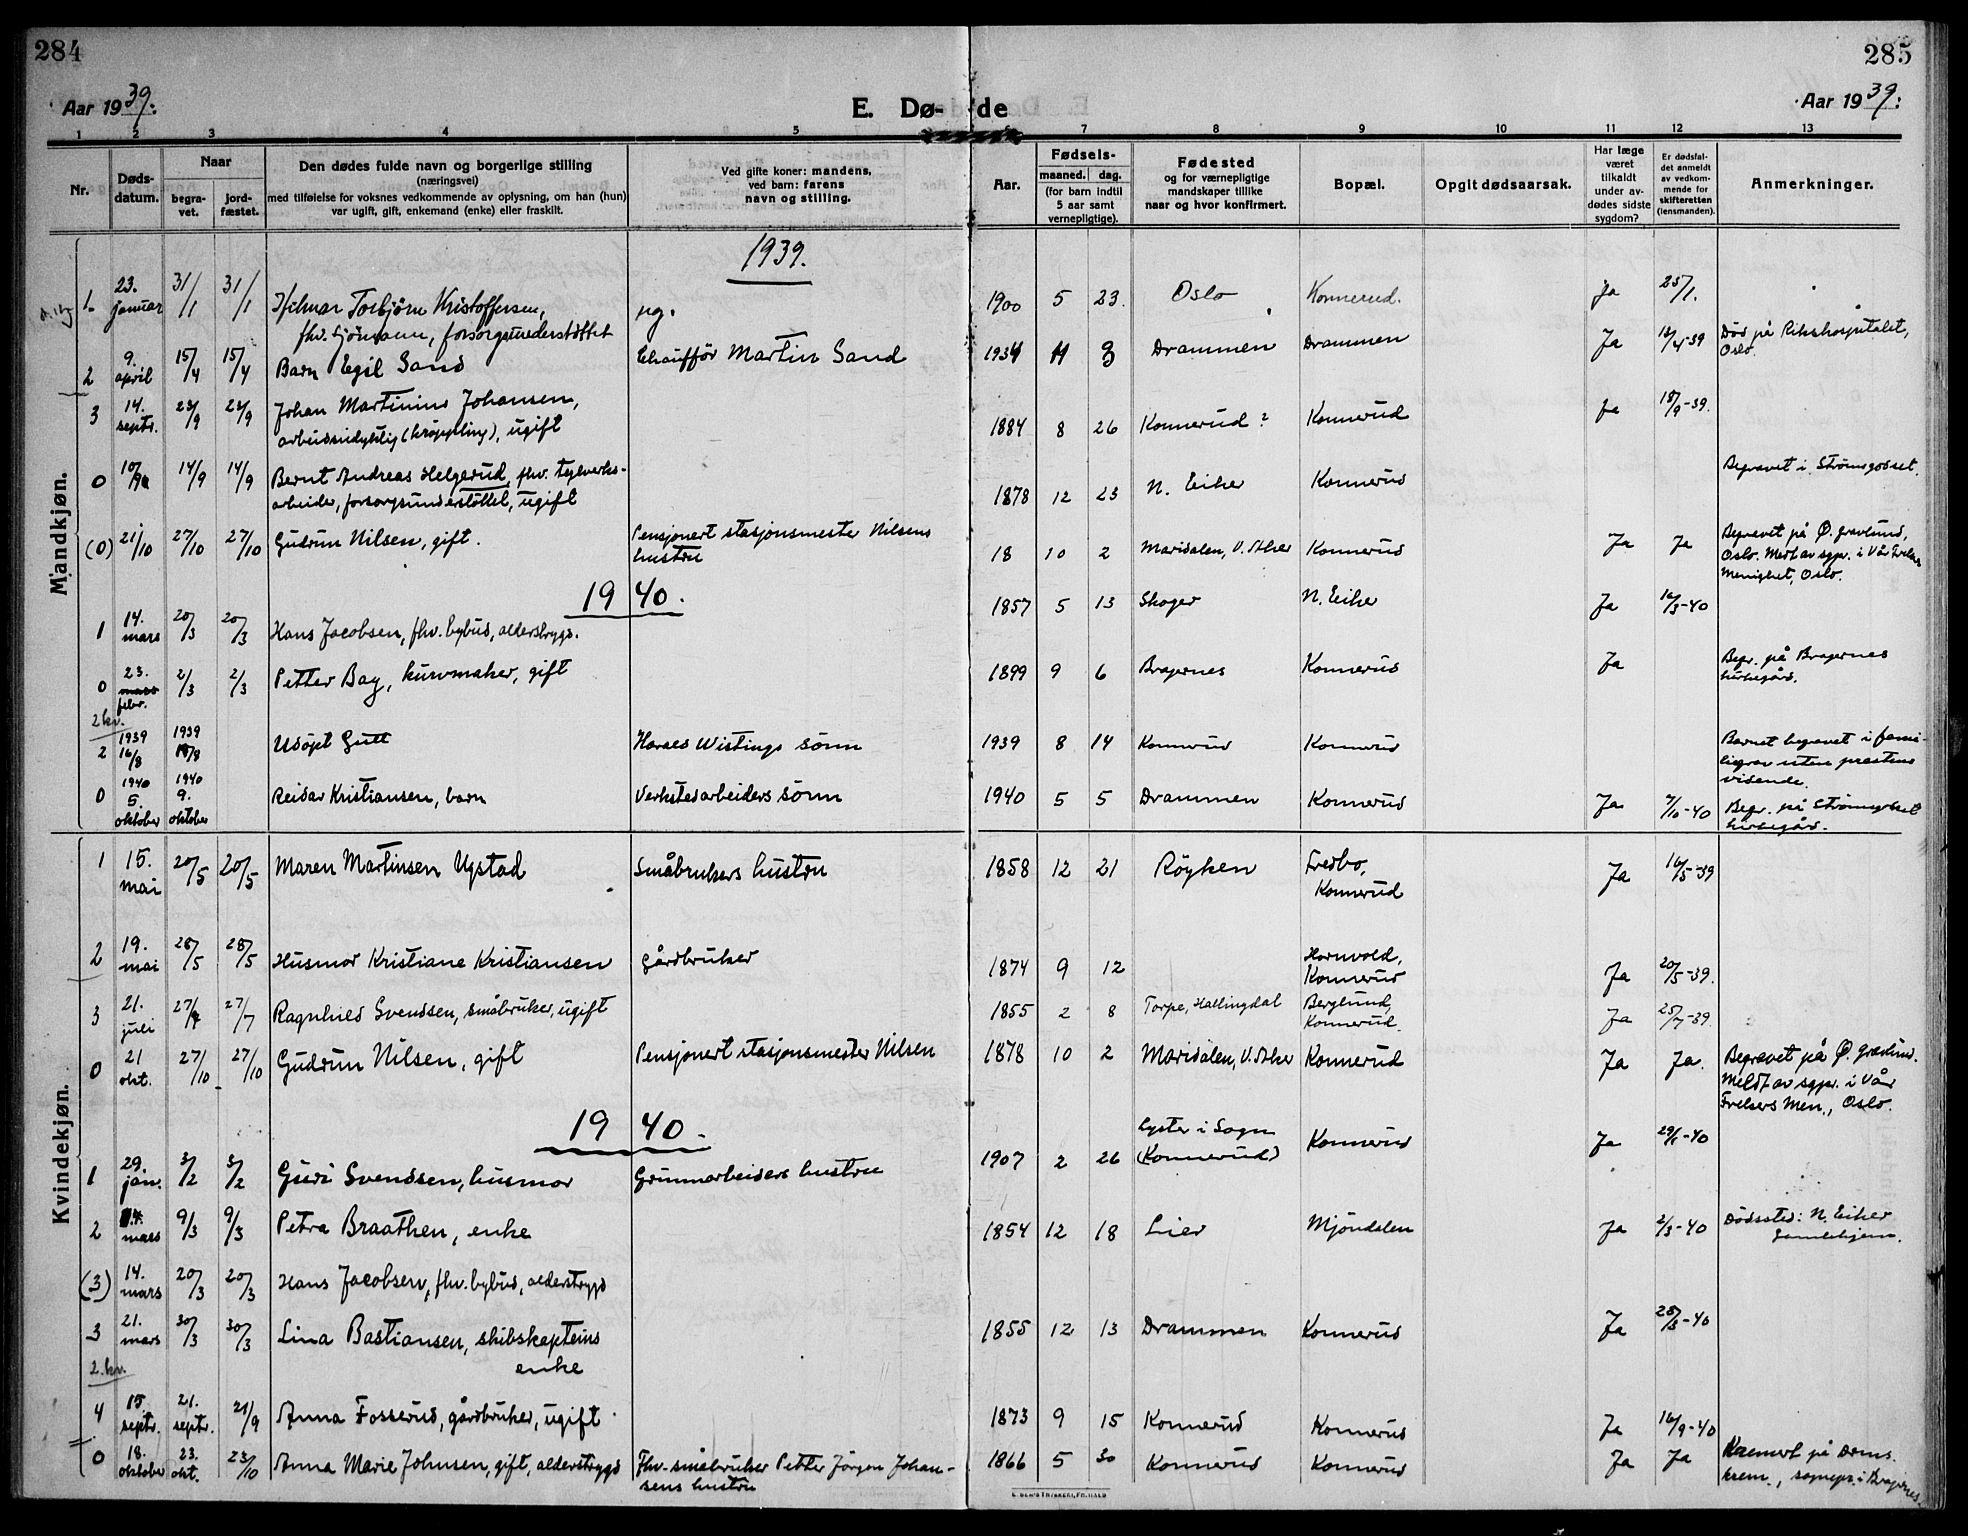 284
285
Aar 1939.
E. Dø-de
Aar 1939.
1 2 3 4 5 7 8 9 10 11 12 13
Nr.
Døds-
datum.
Naar
begra-
vet.
jord-
fæstet.
Den dødes fulde navn og borgerlige stilling
(næringsvei)
med tilføielse for voksnes vedkommende av oplysning, om han (hun)
var ugift, gift, enkemand (enke) eller fraskilt.
Ved gifte koner: mandens,
ved barn: farens
navn og stilling.
Aar.
Fødsels-
maaned. dag.
(for barn indtil
5 aar samt
vernepligtige).
Fødested
og for værnepligtige
mandskaper tillike
naar og hvor konfirmert.
Bopæl.
Opgit dødsaarsak.
Har læge
været
tilkaldt
under av-
dødes sidste
sygdom?
Er dødsfal-
det anmeldt
av vedkom-
mende for
skifteretten
(lensmanden).
Anmerkninger.
Mandkjøn.
1939.
1. 23. januar 31/1 31/1 Hilmar Torbjørn Kristoffersen, ug. 1900 5 23. Oslo Konnerud. Ja 25/1.
fhv. sjømann, forsorgsunderstøttet
2 9. april 15/4 15/4 Barn Egil Sand Chauffør Martin Sand 1934 Drammen Drammen Ja Død på Rikshospitalet,
Oslo.
3 14. septr. 23/9 23/9 Johan Martinius Johansen, 1884 8 26 Konnerud? Konnerud Ja 18/9-39.
arbeidsudyktig (krøppling), ugift
0 14/9 14/9 Bernt Andreas Helgerud, fhv. teglverks- 1878 12 23 N. Eiker Konnerud Begravet i Strømsgodset.
arbeider, forsorgsunderstøttet, ugift
(0) 21/10 27/10 27/10 Gudrun Nilsen, gift. Pensjonert stasjonsmester Nilsens 18 10 2 Maridalen, V. Aker Konnerud Ja Ja Begravet på Ø. gravlund,
hustru Oslo. Meldt av sgpr. i Vår Frelsers
Menighet, Oslo.
1940.
1 14. mars 20/3 20/3 Hans Jacobsen, fhv. bybud, alderstrygd. 1857 5 13 Skoger N. Eiker Ja 16/3-40
0 23. mars febr. 2/3 2/3 Petter Bay, kurvmaker, gift 1899 9 6 Bragernes Konnerud Ja Begr. på Bragernes
kirkegård.
2 kv.
2 1939 16/8 1939 18/8 Udøpt Gutt Haraes Wistings sønn 1939 8 14 Konnerud Konnerud Barnet begravet i fami-
liegrav uten prestens
vidende.
0 1940 5. oktober 1940 9. oktober Reidar Kristiansen, barn Verkstedarbeiders sønn 1940 5 5 Drammen Konnerud Ja 7/10-40 Begr. på Strømsgodset
kirkegård.
Kvindekjøn.
1 15. mai 20/5 20/5 Maren Martinsen Ugstad Småbrukers hustru 1858 12 21 Røyken Fredbo, Ja 16/5-39
Konnerud
2 19. mai 28/5 28/5 Husmor Kristiane Kristiansen gårdbruker 1874 9 12 Hornvold, Ja 20/5-39.
Konnerud
3 21. juli 27/7 27/7 Ragnhild Svendsen, småbruker, ugift 1855 2 8 Torpe, Hallingdal Berglund, Ja 25/7-39.
Konnerud.
0 21 okt. 27/10 27/10 Gudrun Nilsen, gift Pensjonert stasjonsmester Nilsen 1878 10 2 Maridalen, V. Aker Konnerud Ja Ja. Begravet på Ø. gravlund.
Meldt av sgpr. i Vår
Frelsers Men., Oslo.
1940.
1 29. jan. 3/2 3/2 Guri Svendsen, husmor Grunnarbeiders hustru 1907 2 26 Lyster i Sogn (Konnerud) Konnerud Ja 29/1-40
2 mars 9/3 9/3 Petra Braathen, enke 1854 12 18 Lier Mjøndalen Ja 2/3-40 Dødssted: N. Eiker
Gamlehjem.
(3) 14. mars 20/3 20/3 Hans Jacobsen, fhv. bybud, alderstrygd
3 21. mars 30/3 30/3 Lina Bastiansen, skibskapteins 1855 12 13 Drammen Konnerud Ja 28/3-40
enke
2. kv.
4 15. septr. 21. septr. 21/9 Anna Fosserud, gårdbruker, ugift 1873 9 15 Konnerud Konnerud Ja 16/9-40
0 18. oktober 23. okt. 23/10 Anna Marie Johnsen, gift, alderstrygd Fhv. småbruker Petter Jørgen Johan- 1866 5 30 Konnerud Konnerud Ja Ja Kremert på Drms.
sens hustru krem., sognepr. i Bragernes.